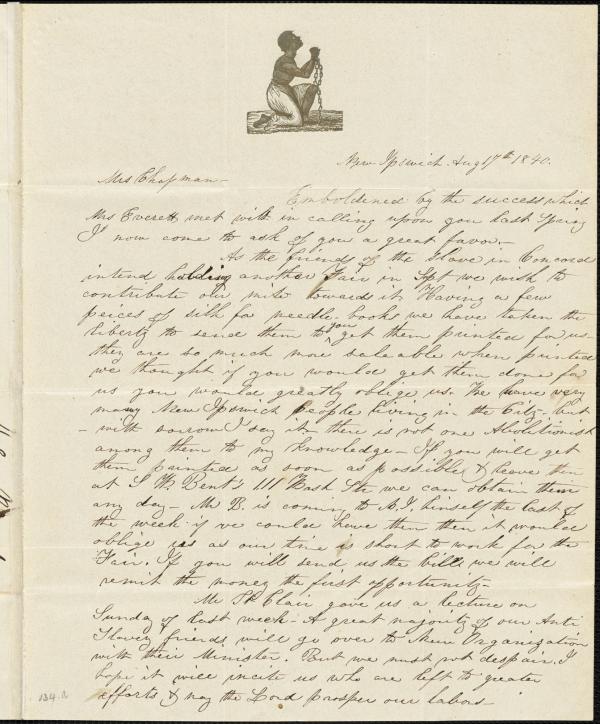 New Ipswich Aug 17th 1840.
Mrs Chapman-
Emboldened by the success which
Mrs Everett met with in calling upon you last Spring
I now come to ask of you a great favor.-
As the friend of the Slave in Concord
intend holding another Fair in Spt we wish to
contribute our mite towards it. Having a few
peices of silk for needle-books we have taken the
liberty to send them to you get them printed for us-
they are so much more saleable when printed
we thought if you would get them done for
us you would greatly oblige us. We have very
many New Ipswich people living in the City- but
- with sorrow I say it- there is not one Abolitionist
among them to my knowledge- If you will get
them printed as soon as possible & leave them
at S. W. Bent's 111 Wash Str we can obtain them
any day- Mr B. is coming to N. I. himself the last of
the week- if we could have them then it would
oblige us as our time is short to work for the
Fair. If you will send us the bill we will
remit the money the first opportunity-
Mr St Clair gave us a lecture on
Sunday of last week- A great majority of our Anti
Slavery friends will go over to New Organization
with their Minister. But we must not despair. I
hope it will incite us who are left to greater
efforts & may the Lord prosper our labors-